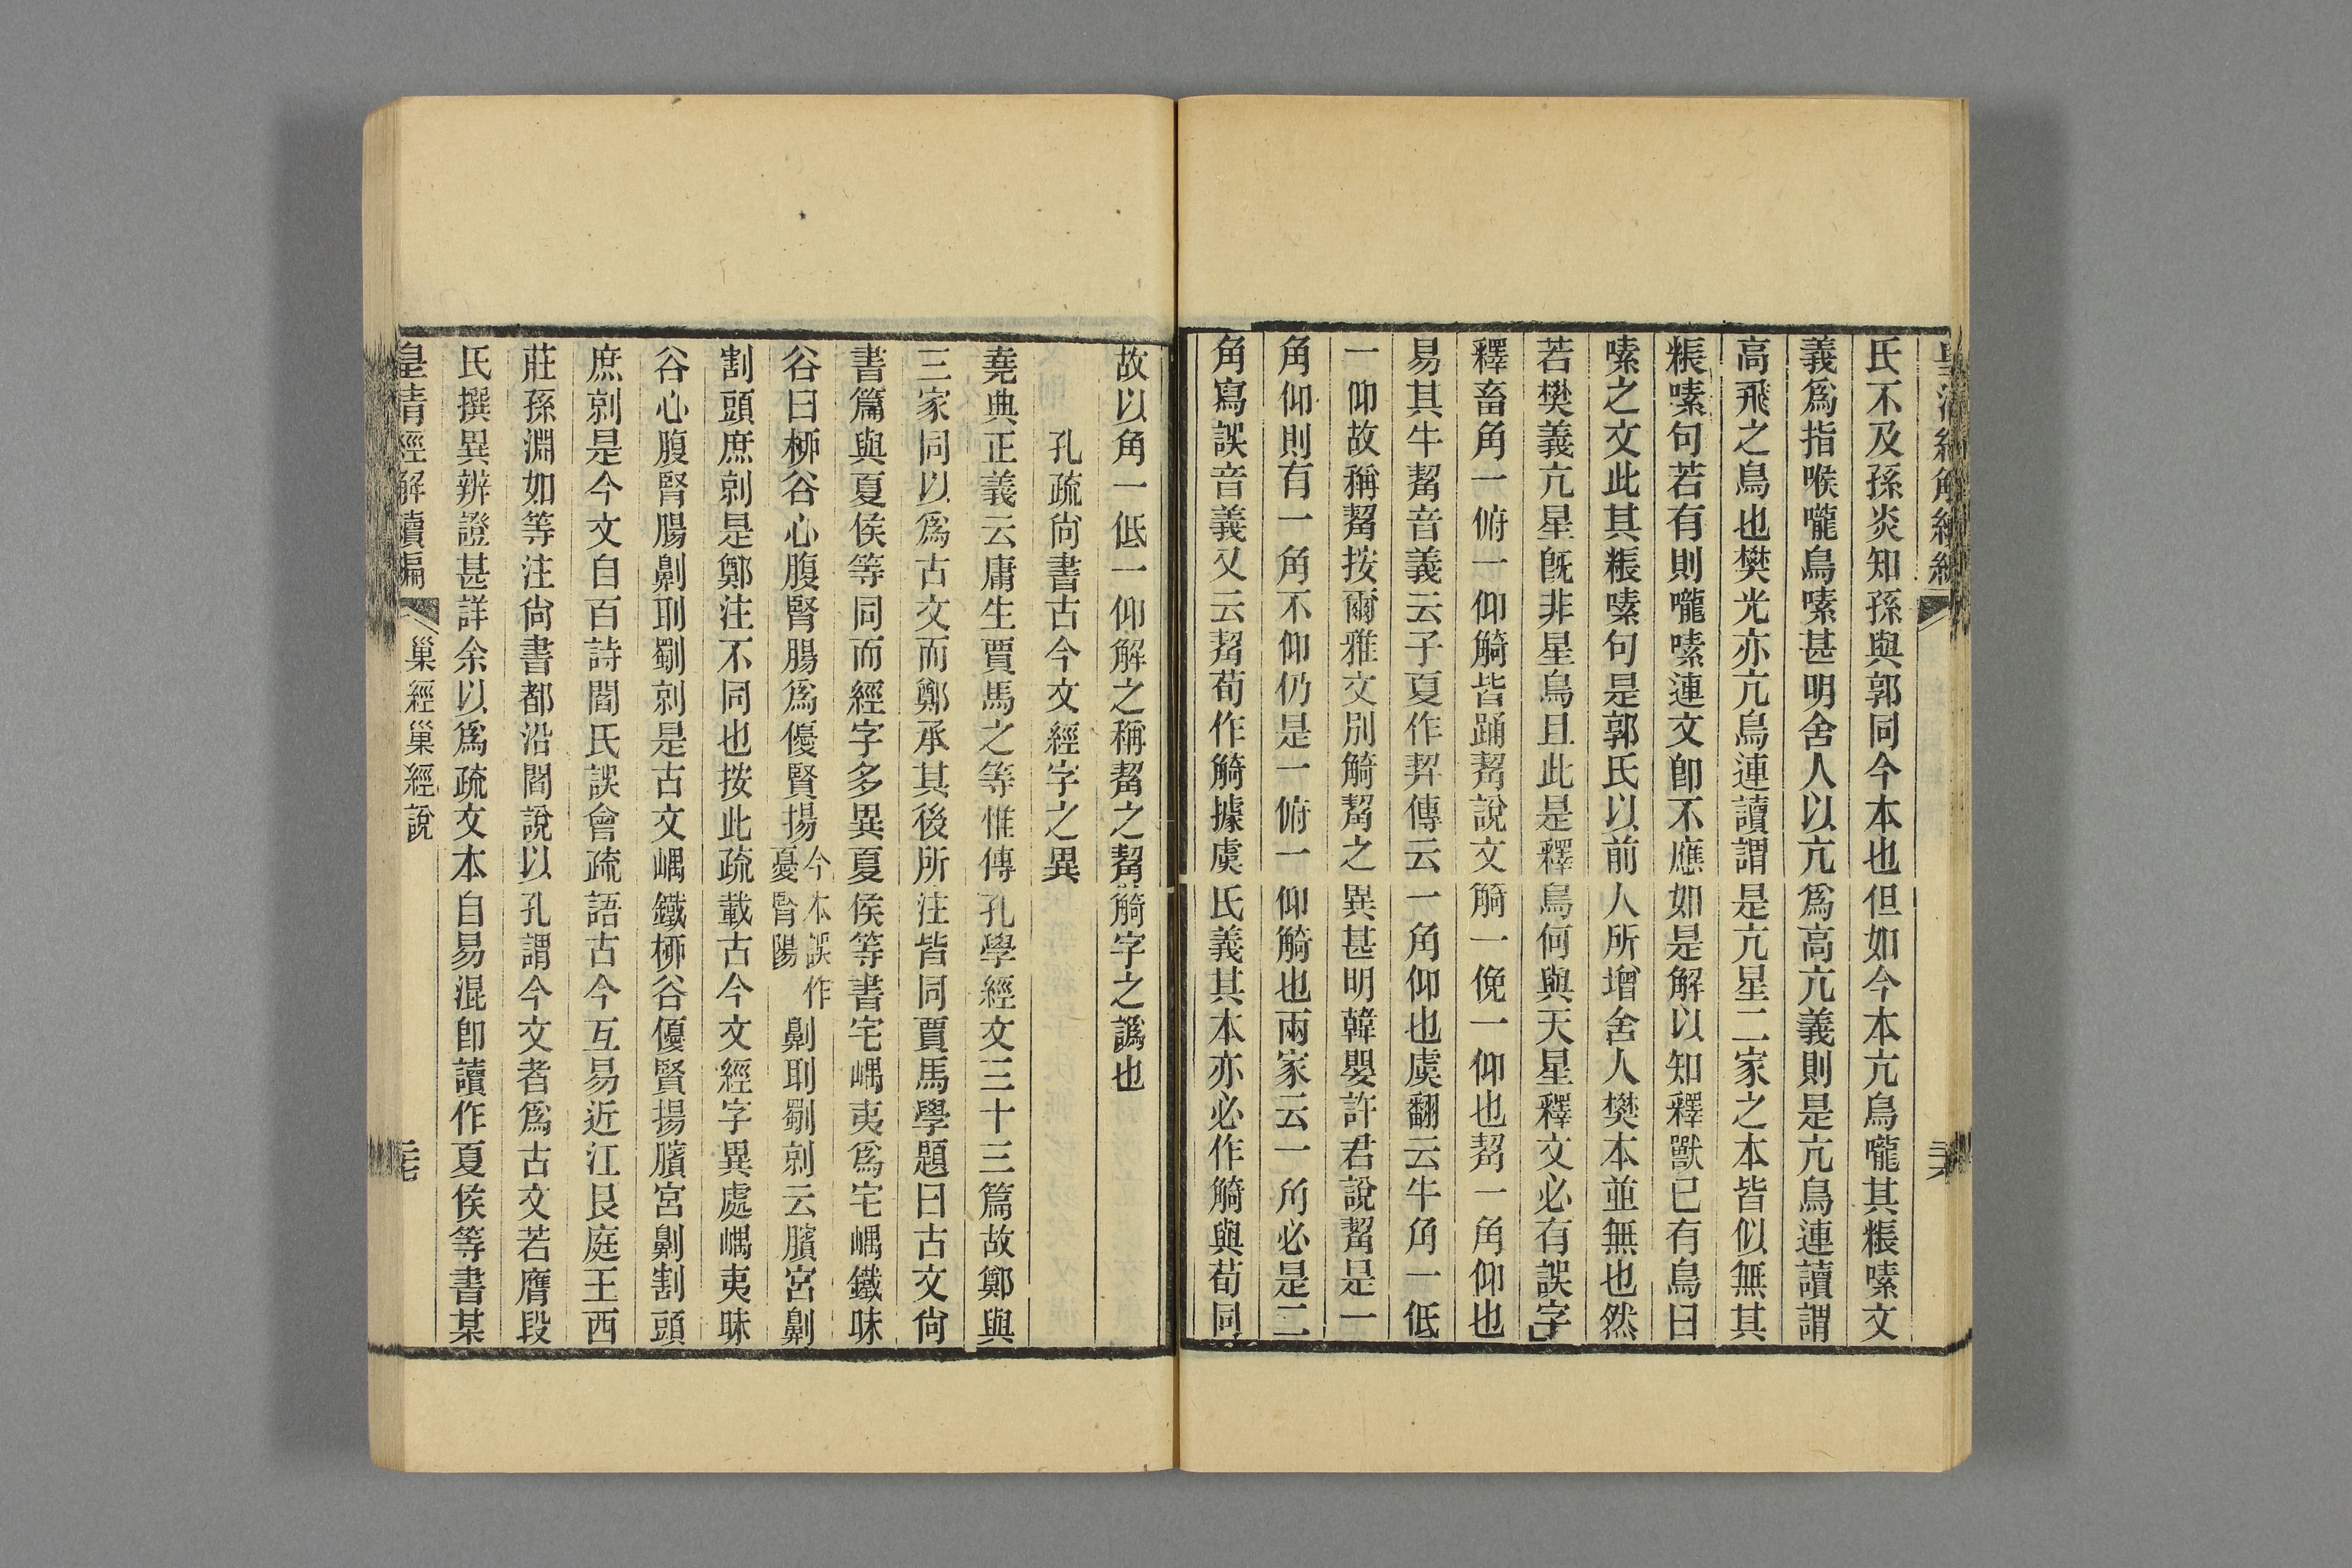 皇清經解續編
氏不及孫炎知孫與郭同今本也但如今本亢鳥嚨其粻嗉文
義爲指喉嚨鳥嗉甚明舍人以亢爲高亢義則是亢鳥連讀謂
高飛之鳥也樊光亦亢鳥連讀謂是亢星二家之本皆似無其
粻嗉句若有則嚨嗉連文卽不應如是解以知釋獸已有鳥曰
嗉之文此其粻嗉句是郭氏以前人所增舍人樊本並無也然
若樊義亢星旣非星鳥且此是釋鳥何與天星釋文必有誤字
釋畜角一俯一仰觭皆踊觢說文觭一俛一仰也觢一角仰也
易其牛觢音義云子夏作契傳云一角仰也虞翻云牛角一低
一仰故稱觢按爾雅文別觭觢之異甚明韓嬰許君說觢是一
角仰則有一角不仰仍是一俯一仰觭也兩家云一角必是二
角寫誤音義又云觢荀作觭據虞氏義其本亦必作觭與荀同
故以角一低一仰解之稱觢之觢觭字之譌也
孔疏尙書古今文經字之異
堯典正義云庸生賈馬之等惟傳孔學經文三十三篇故鄭與
三家同以爲古文而鄭承其後所注皆同賈馬學題曰古文尙
書篇與夏侯等同而經字多異夏侯等書宅嵎夷爲宅嵎鐵昧
谷曰桺谷心腹腎腸爲優賢揚今本誤作憂腎陽劓刵劅剠云臏宮劓
割頭庶剠是鄭注不同也按此疏載古今文經字異處嵎夷昧
谷心腹腎腸劓刵劅剠是古文嵎鐵桺谷優賢揚臏宮劓割頭
庶剠是今文自百詩閻氏誤會疏語古今互易近江艮庭王西
莊孫淵如等注尙書都沿閻說以孔謂今文者爲古文若膺段
氏撰異辨證甚詳余以爲疏文本自易混卽讀作夏侯等書某
皇清經解續編 巢經巢經說